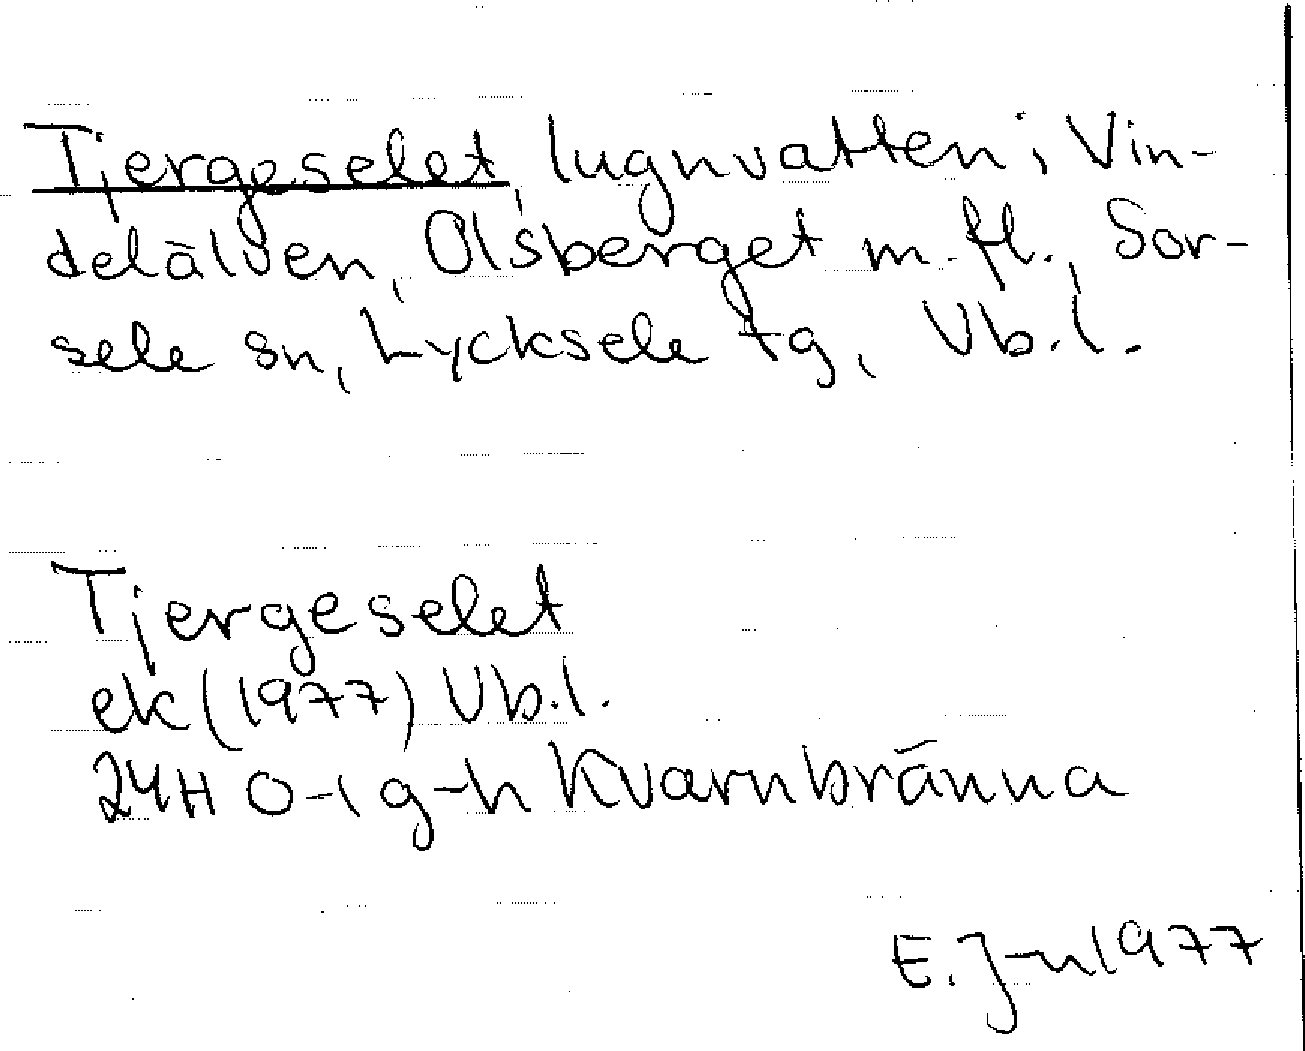 Tjergeselet, lugnvatten i Vin-
delälven, Olsberget m. fl., Sor-
sele sn, Lycksele tg, Vb.l.
Tjergeselet
ek (1977) Vb.l.
24H 0-1 g-h Kvarnbränna
E. J-n 1977